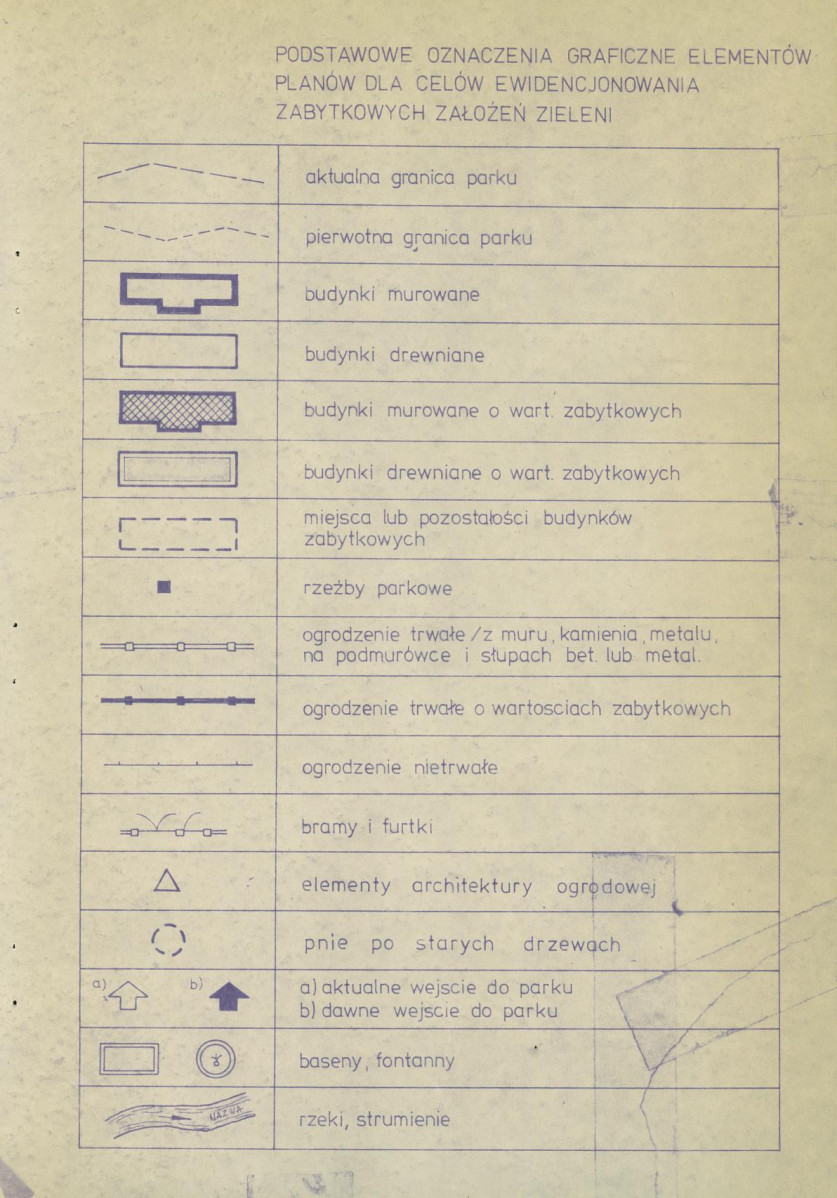 PODSTAWOWE OZNACZENIA GRAFICZNE ELEMENTÓW
PLANÓW DLA CELÓW EWIDENCJONOWANIA
ZABYTKOWYCH ZAŁOŻEŃ ZIELENI
aktualna granica parku
pierwotna granica parku
budynki murowane
budynki drewniane
budynki murowane o wart. zabytkowych
budynki drewniane o wart. zabytkowych
miejsca lub pozostałości budynków
zabytkowych
rzeźby parkowe
ogrodzenie trwałe /z muru, kamienia, metalu,
na podmurówce i słupach bet. lub metal.
ogrodzenie trwałe o wartosciach zabytkowych
ogrodzenie nietrwałe
bramy i furtki
elementy architektury ogrodowej
pnie po starych drzewach
a) b) a) aktualne wejscie do parku
b) dawne wejscie do parku
baseny, fontanny
NAZWA rzeki, strumienie